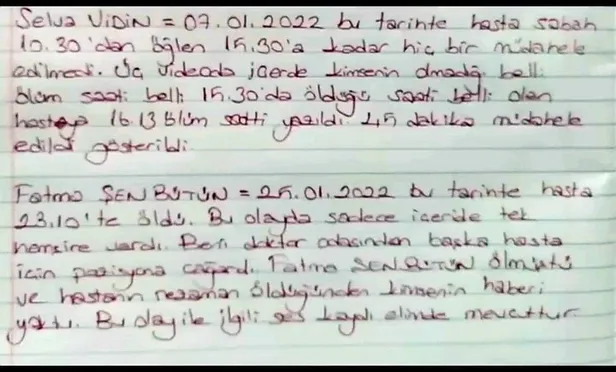 Selva VİDİN = 07.01.2022 bu tarihte hasta sabah
10.30'dan öğlen 15.30'a kadar hiç bir müdahele
edilmedi. Üç videoda içerde kimsenin olmadığı belli.
ölüm saati belli 15.30'da öldüğü saati belli olan
hastaya 16.13 ölüm saati yazıldı. 45 dakika müdahele
edildi gösterildi.
Fatma ŞENBÜTÜN = 25.01.2022 bu tarihte hasta
23.10'te öldü. Bu olayda sadece içeride tek
hemşire vardı. Beni doktor odasından başka hasta
için pozisyona çağırdı. Fatma ŞENBÜTÜN ölmüştü
ve hastanın nezaman öldüğünden kimsenin haberi
yoktu. Bu olay ile ilgili ses kaydı elimde mevcuttur.